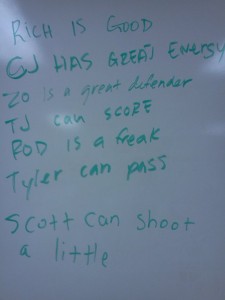 RICH IS GOOD
CJ HAS GREAT ENERGY
Zo is a great defender
TJ can SCORE
ROD is a freak
Tyler can pass
Scott can shoot
a little